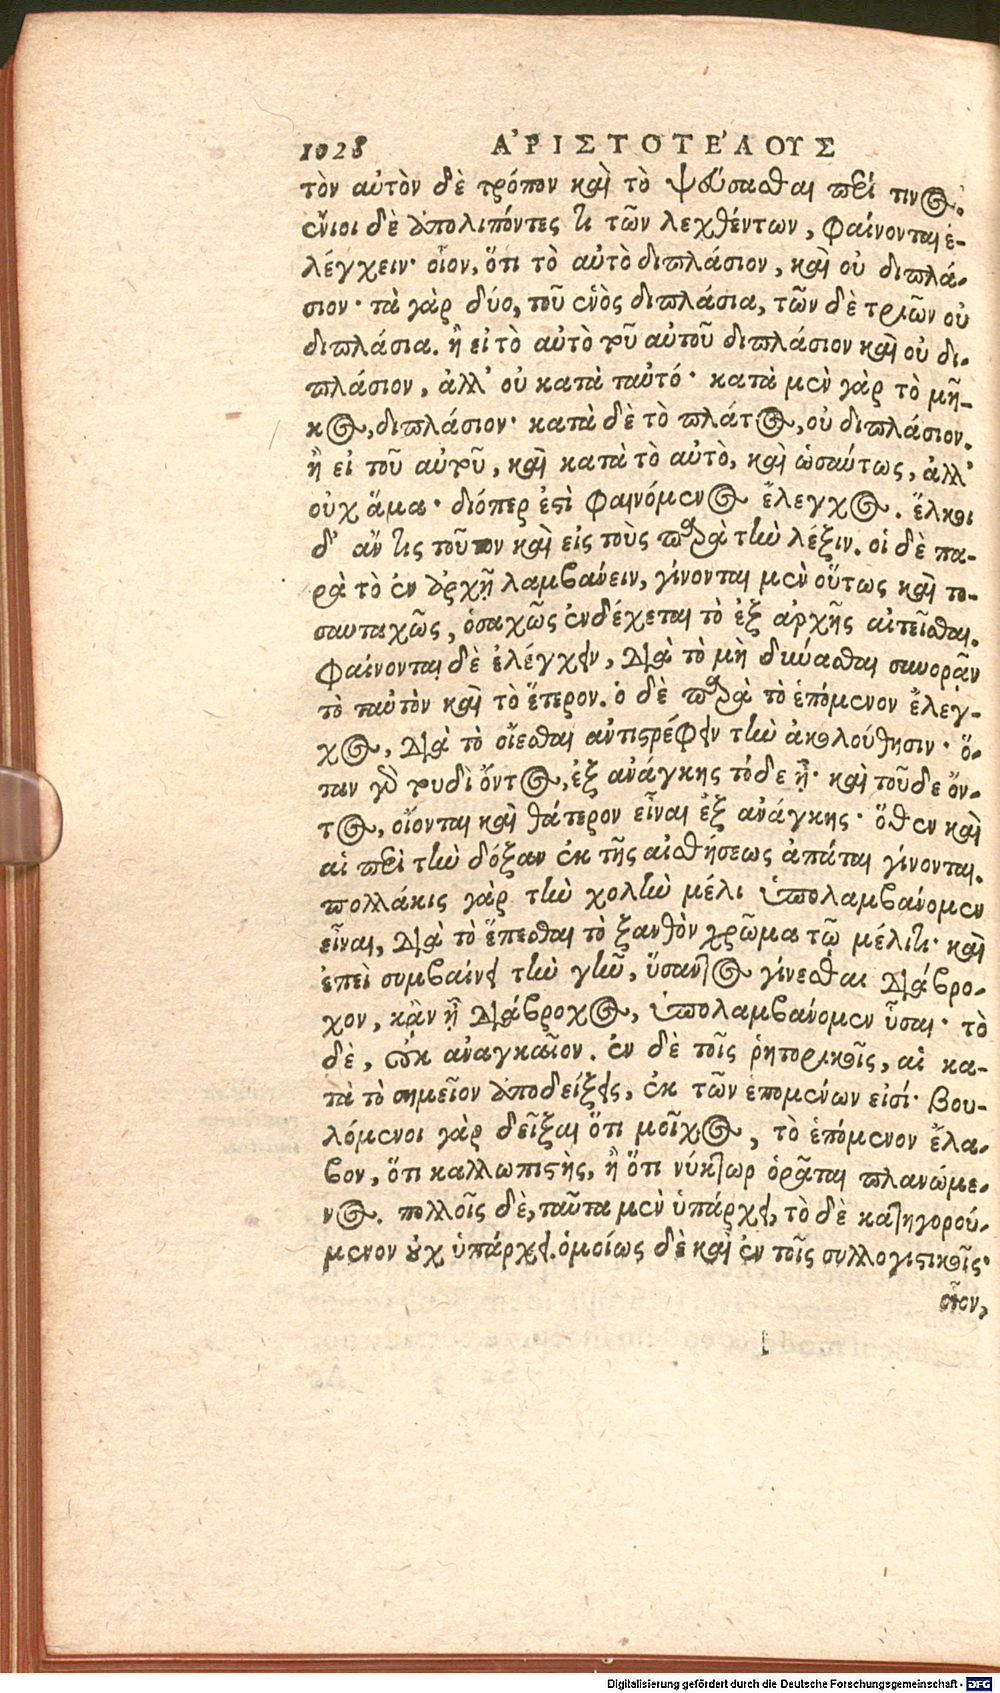 1028 ἈΡΙΣΤΟΤΕΛΟΥΣ
τὸν αὐτὸν δὲ τρόπον καὶ τὸ ψεύσασθαι περί τινος.
ἔνιοι δὲ ἀπολιπόντες τι τῶν λεχθέντων, φαίνονται ἐ-
λέγχειν· οἷον, ὅτι τὸ αὐτὸ διπλάσιον, καὶ οὐ διπλά-
σιον· τὰ γὰρ δύο, τοῦ ἑνὸς διπλάσια, τῶν δὲ τριῶν οὐ
διπλάσια. ἢ εἰ τὸ αὐτὸ τοῦ αὐτοῦ διπλάσιον καὶ οὐ δι-
πλάσιον, ἀλλ' οὐ κατὰ ταὐτό· κατὰ μὲν γὰρ τὸ μῆ-
κος, διπλάσιον· κατὰ δὲ τὸ πλάτος, οὐ διπλάσιον.
ἢ εἰ τοῦ αὐτοῦ, καὶ κατὰ τὸ αὐτὸ, καὶ ὡσαύτως, ἀλλ'
οὐχ ἅμα· διόπερ ἐστὶ φαινόμενος ἔλεγχος. ἕλκοι
δ' ἄν τις τοῦτον καὶ εἰς τοὺς παρὰ τὴν λέξιν. οἱ δὲ πα-
ρὰ τὸ ἐν ἀρχῇ λαμβάνειν, γίνονται μὲν οὕτως καὶ το-
σαυταχῶς, ὁσαχῶς ἐνδέχεται τὸ ἐξ ἀρχῆς αἰτεῖσθαι.
φαίνονται δὲ ἐλέγχειν, διὰ τὸ μὴ δύνασθαι συνορᾶν
τὸ ταὐτὸν καὶ τὸ ἕτερον. ὁ δὲ παρὰ τὸ ἑπόμενον ἔλεγ-
χος, διὰ τὸ οἴεσθαι ἀντιστρέφειν τὴν ἀκολούθησιν· ὅ-
ταν γὰρ τουδὶ ὄντος, ἐξ ἀνάγκης τόδε ᾖ· καὶ τοῦδε ὄν-
τος, οἴονται καὶ θάτερον εἶναι ἐξ ἀνάγκης· ὅθεν καὶ
αἱ περὶ τὴν δόξαν ἐκ τῆς αἰσθήσεως ἀπάται γίνονται.
πολλάκις γὰρ τὴν χολὴν μέλι ὑπολαμβάνομεν
εἶναι, διὰ τὸ ἕπεσθαι τὸ ξανθὸν χρῶμα τῷ μέλιτι· καὶ
ἐπεὶ συμβαίνει τὴν γῆν, ὕσαντος γίνεσθαι διάβρο-
χον, κἂν ᾖ διάβροχος, ὑπολαμβάνομεν ὗσαι· τὸ
δὲ, οὐκ ἀναγκαῖον. ἐν δὲ τοῖς ῥητορικοῖς, αἱ κα-
τὰ τὸ σημεῖον ἀποδείξεις, ἐκ τῶν ἑπομένων εἰσί· βου-
λόμενοι γὰρ δεῖξαι ὅτι μοῖχος, τὸ ἑπόμενον ἔλα-
βον, ὅτι καλλωπιστὴς, ἢ ὅτι νύκτωρ ὁρᾶται πλανώμε-
νος. πολλοῖς δὲ, ταῦτα μὲν ὑπάρχει, τὸ δὲ κατηγορού-
μενον οὐχ ὑπάρχει. ὁμοίως δὲ καὶ ἐν τοῖς συλλογιστικοῖς·
οἷον,
Digitalisierung gefördert durch die Deutsche Forschungsgemeinschaft - DFG